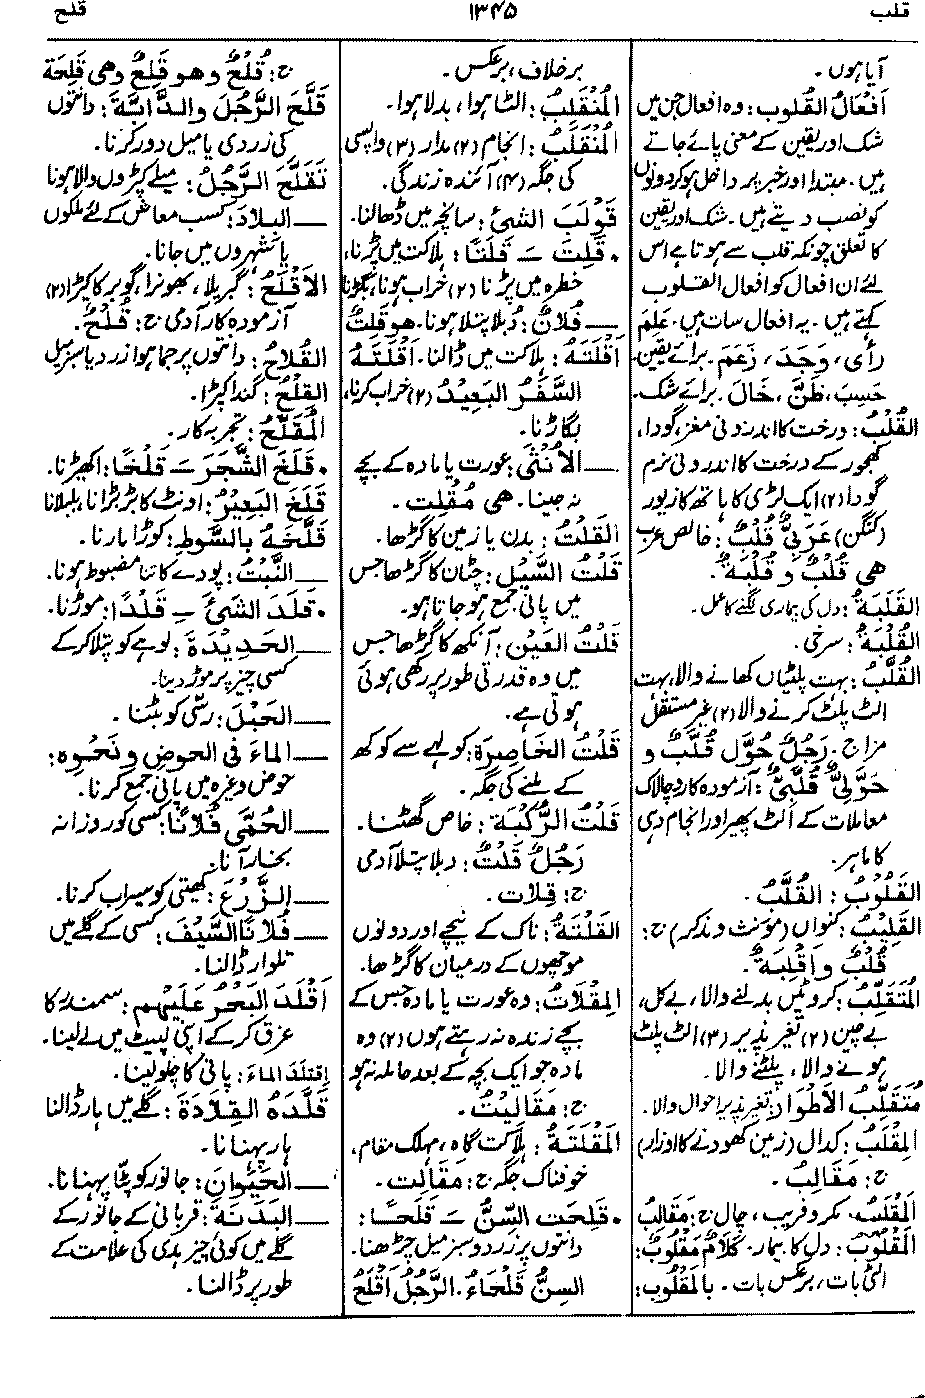 قلب
۱۳۴۵
قلح
آیا ہوں۔
أفْعَالُ القُلوب: وہ افعال جن میں
شک اور یقین کے معنی پائے جاتے
ہیں۔ مبتدا اور خبر پر داخل ہو کر دونوں
کو نصب دیتے ہیں۔ شک اور یقین
کا تعلق چونکہ قلب سے ہوتا ہے اس
لئے ان افعال کو افعال القلوب
کہتے ہیں۔ یہ افعال سات ہیں۔ عَلِمَ
رأى، وَجَدَ، زَعَمَ۔ برائے یقین۔
حَسِبَ، ظَنَّ، خَالَ۔ برائے شک۔
القُلْبُ: درخت کا اندرونی مغز، گودا،
کھجور کے درخت کا اندرونی نرم
گودا (۲) ایک لڑی کا ہاتھ کا زیور
(کنگن) عَرَبِيٌّ قُلْبٌ: خالص عرب
هي قُلْبٌ و قُلْبَةٌ۔
القَلَبَةُ: دل کی بیماری لگنے کا عمل۔
القُلْبَةُ: سرخی۔
القُلَّبُ: بہت پلٹیاں کھانے والا، بہت
الٹ پلٹ کرنے والا (۲) غیر مستقل
مزاج۔ رَجُلٌ حُوَّل قُلَّبٌ و
حُوَّلِيٌّ قُلَّبِيٌّ: آزمودہ کار و چالاک
معاملات کے الٹ پھیر اور انجام دہی
کا ماہر۔
القَلُوبُ: القُلَّبُ۔
القَلِيْبُ: کنواں (مؤنث و مذکر) ج:
قُلُبٌ وأَقْلِبَةٌ۔
المُتَقَلِّبُ: کروٹیں بدلنے والا، بے کل،
بے چین (۲) تغیر پذیر (۳) الٹ پلٹ
ہونے والا، پلٹنے والا۔
مُتَقَلِّبُ الأَطْوَارِ: تغیر پذیر احوال والا۔
المِقْلَبُ: کدال (زمین کھودنے کا اوزار)
ج: مَقَالِبُ۔
المَقْلَبُ: مکر و فریب، چال ج: مَقَالِبُ
المَقْلُوبُ: دل کا بیمار۔ كَلَامٌ مَقْلُوبٌ:
الٹی بات، برعکس بات۔ بالمَقْلُوبِ:
برخلاف، برعکس۔
المُنْقَلِبُ: الٹا ہوا، بدلا ہوا۔
المُنْقَلَبُ: انجام (۲) مدار (۳) واپسی
کی جگہ (۴) آئندہ زندگی۔
قَوْلَبَ الشيئَ: سانچہ میں ڈھالنا۔
• قَلِتَ ـَ قَلَتًا: ہلاکت میں پڑنا،
خطرہ میں پڑنا (۲) خراب ہونا، بگڑنا
ــــ فُلانٌ: دُبلا پتلا ہونا۔ هو قَلِتٌ
أقْلَتَهُ: ہلاکت میں ڈالنا۔ أقْلَتَهُ
السَّفَرُ البَعِيدُ (۲) خراب کرنا،
بگاڑنا۔
ــــ الأُنْثَى: عورت یا مادہ کے بچے
نہ جینا۔ هي مُقْلِت۔
القَلْتُ: بدن یا زمین کا گڑھا۔
قَلْتُ السَّيْلِ: چٹان کا گڑھا جس
میں پانی جمع ہو جاتا ہو۔
قَلْتُ العَيْنِ: آنکھ کا گڑھا جس
میں وہ قدرتی طور پر رکھی ہوئی
ہوتی ہے۔
قَلْتُ الخَاصِرَة: کولہے سے کوکھ
کے ملنے کی جگہ۔
قَلْتُ الرُّكْبَةِ: خاص گھٹنا۔
رَجُلٌ قَلْتٌ: دبلا پتلا آدمی
ج: قِلات۔
القَلْتَةُ: ناک کے نیچے اور دونوں
موچھوں کے درمیان کا گڑھا۔
المِقْلَاتُ: وہ عورت یا مادہ جس کے
بچے زندہ نہ رہتے ہوں (۲) وہ
مادہ جو ایک بچہ کے بعد حاملہ نہ ہو
ج: مَقَالِيْتُ۔
المَقْلَتَةُ: ہلاکت گاہ، مہلک مقام،
خوفناک جگہ ج: مَقَالِت۔
• قَلِحَتِ السِّنُّ ـَ قَلَحًا:
دانتوں پر زرد و سبز میل چڑھنا۔
السِنُّ قَلْحَاءُ۔ الرَّجُلُ أقْلَحُ
ج: قُلْحٌ وهو قَلِحٌ وهي قَلِحَة
قَلَّحَ الرَّجُلَ والدَّابَّةَ: دانتوں
کی زردی یا میل دور کرنا۔
تَقَلَّحَ الرَّجُلُ: میلے کپڑوں والا ہونا
ــــ البِلادَ: کسب معاش کے لئے ملکوں
یا شہروں میں جانا۔
الأَقْلَحُ: گبریلا، بھونرا، گوبر کا کیڑا (۲)
آزمودہ کار آدمی ج: قُلْحٌ۔
القُلَاحُ: دانتوں پر جما ہوا زرد یا سبز میل
القِلْحُ: گندا کپڑا۔
المُقَلَّحُ: تجربہ کار۔
• قَلَخَ الشَّجَرَ ـَ قَلْخًا: اکھیڑنا۔
قَلَخَ البَعِيرُ: اونٹ کا بڑبڑانا، بلبلانا
قَلَّخَهُ بالسَّوْطِ: کوڑا مارنا۔
ــــ النَّبْتُ: پودے کا تنا مضبوط ہونا۔
• قَلَدَ الشيئَ ـِ قَلْدًا: موڑنا۔
ــــ الحَدِيدَةَ: لوہے کو پتلا کر کے
کسی چیز پر موڑ دینا۔
ــــ الحَبْلَ: رسّی کو بٹنا۔
ــــ الماءَ في الحوضِ ونَحْوِه:
حوض وغیرہ میں پانی جمع کرنا۔
ــــ الحُمَّى فُلانًا: کسی کو روزانہ
بخار آنا۔
ــــ الزَّرْعَ: کھیتی کو سیراب کرنا۔
ــــ فُلانًا السَّيْفَ: کسی کے گلے میں
تلوار ڈالنا۔
أقْلَدَ البَحْرُ عَلَيْهِم: سمندر کا
غرق کر کے اپنی لپیٹ میں لے لینا۔
اِقْتَلَدَ الماءَ: پانی کا چلو لینا۔
قَلَّدَهُ القِلَادَةَ: گلے میں ہار ڈالنا
ہار پہنانا۔
ــــ الحَيْوَانَ: جانور کو پٹا پہنانا۔
ــــ البَدَنَةَ: قربانی کے جانور کے
گلے میں کوئی چیز ہدی کی علامت کے
طور پر ڈالنا۔